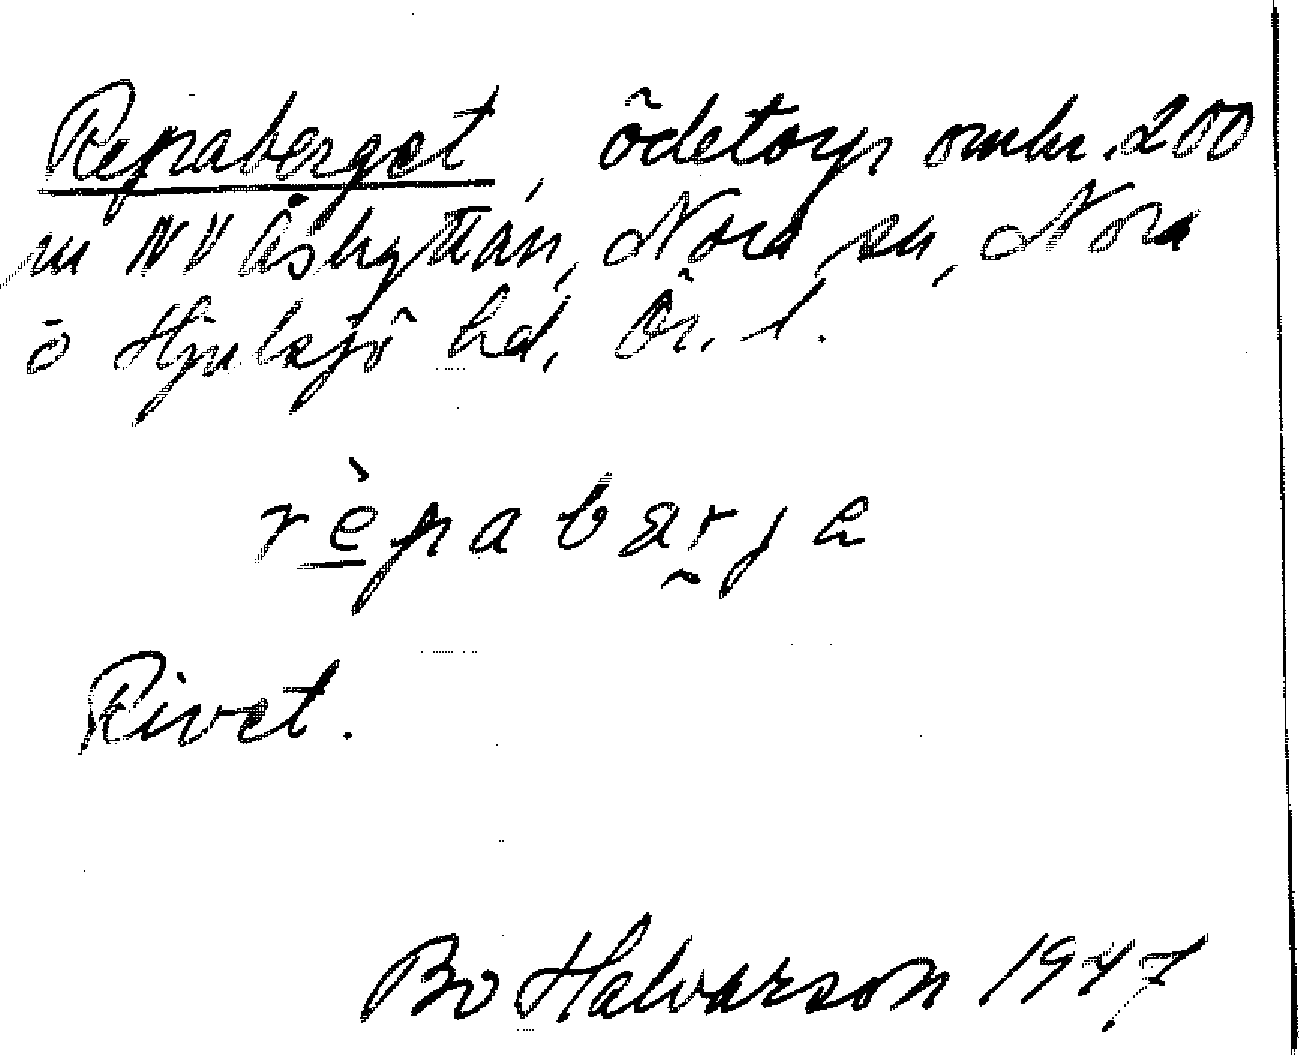 Repaberget, ödetorp omkr. 200
m NV Åshyttan, Nora sn, Nora
o Hjulsjö hd, Ör. l.
rèpabærja
Rivet.
Bo Halvarson 1947